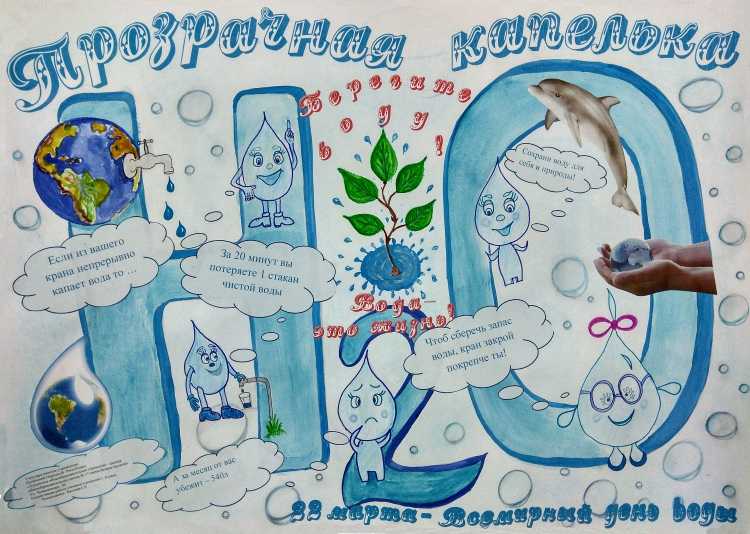 Прозрачная капелька
Берегите
воду!
Сохрани воду для
себя и природы!
Если из вашего
крана непрерывно
капает вода то ...
За 20 минут вы
потеряете 1 стакан
чистой воды
Вода -
это жизнь!
Чтоб сберечь запас
воды, кран закрой
покрепче ты!
А за месяц от вас
убежит – 540л
H2O
22 марта - Всемирный день воды